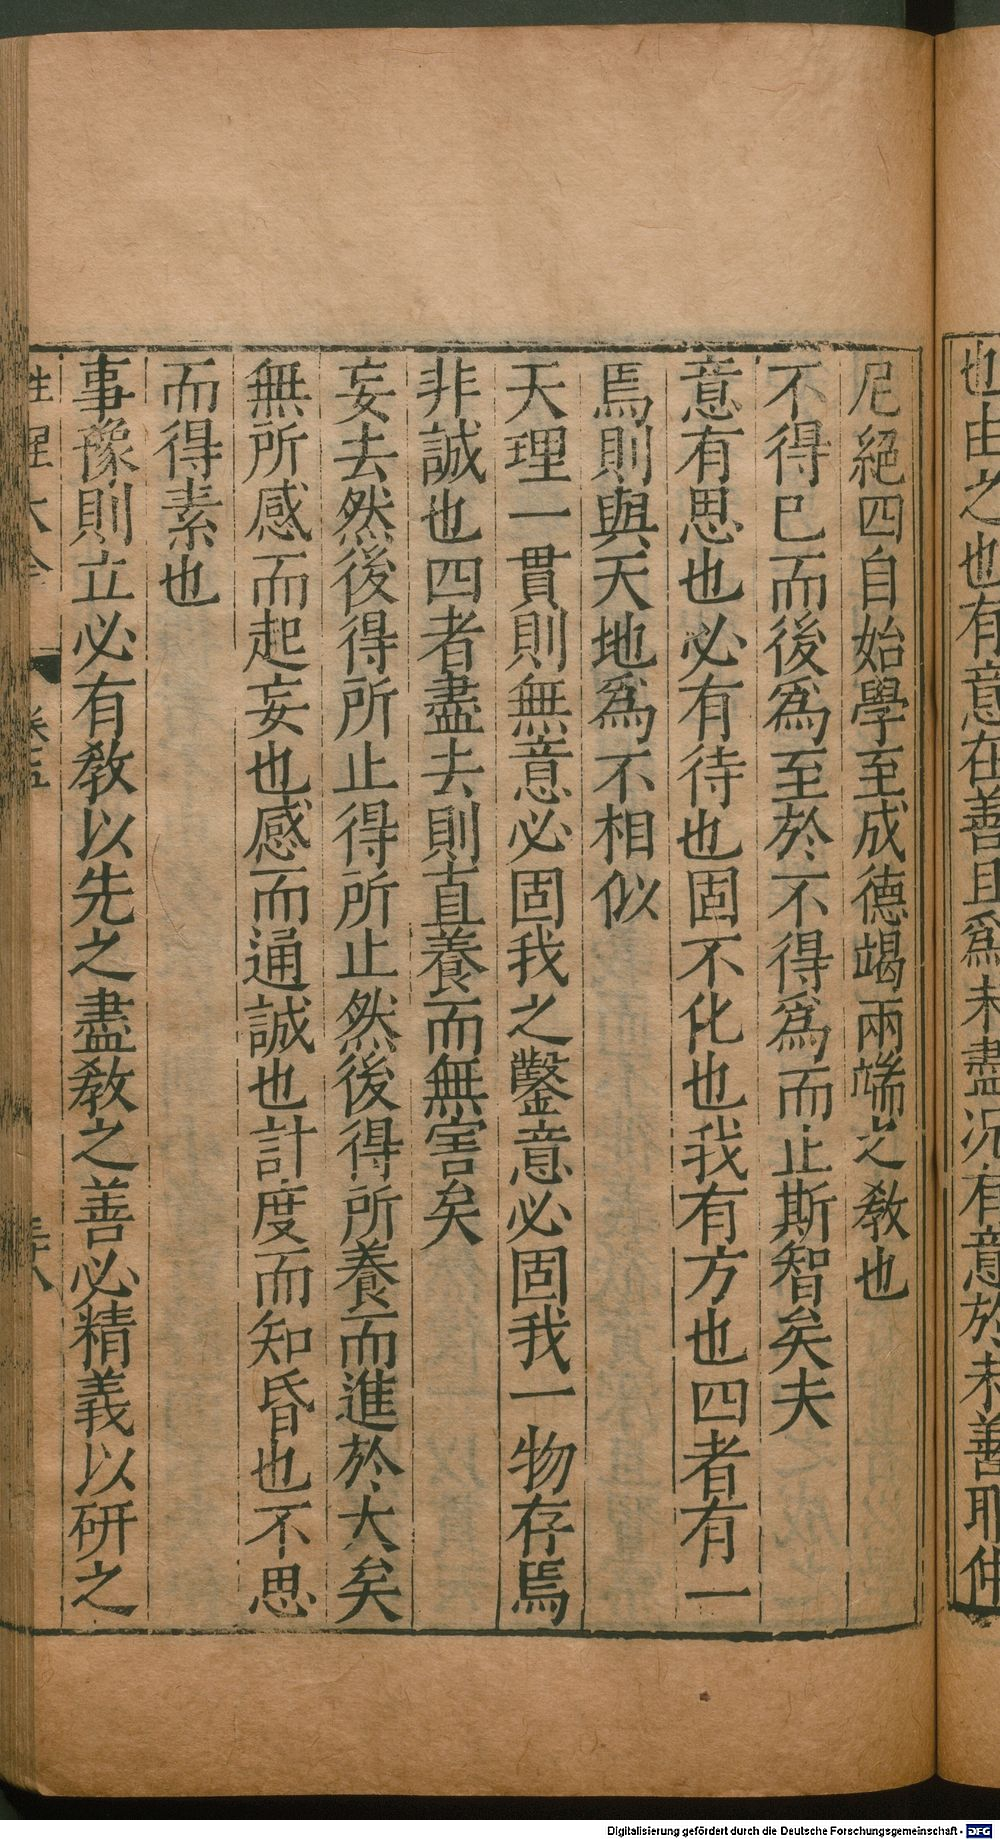 也由之也有意在善且爲未盡况有意於未善耶仲
尼絕四自始學至成德竭兩端之教也
不得已而後爲至於不得爲而止斯智矣夫
意有思也必有待也固不化也我有方也四者有一
焉則與天地爲不相似
天理一貫則無意必固我之鑿意必固我一物存焉
非誠也四者盡去則直養而無害矣
妄去然後得所止得所止然後得所養而進於大矣
無所感而起妄也感而通誠也計度而知昏也不思
而得素也
事豫則立必有教以先之盡教之善必精義以研之
性理大全 卷五 三十八
Digitalisierung gefördert durch die Deutsche Forschungsgemeinschaft - DFG